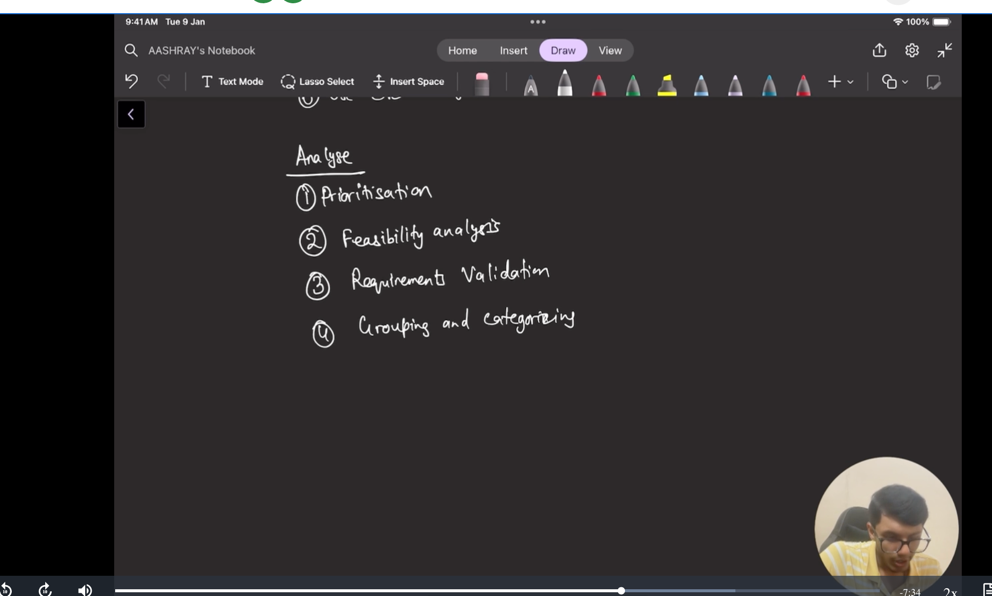 9:41 AM Tue 9 Jan
100%
AASHRAY's Notebook
Home Insert Draw View
Text Mode Lasso Select Insert Space
A
Analyse
① Prioritisation
② Feasibility analysis
③ Requirements Validation
④ Grouping and categorizing
-7:34 2x